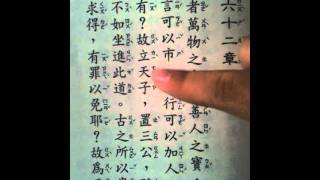 六十二章
者萬物之 善人之寶
言可以市 行可以加人
有？故立天子，置三公，
不如坐進此道。古之所以
求得，有罪以免耶？故為